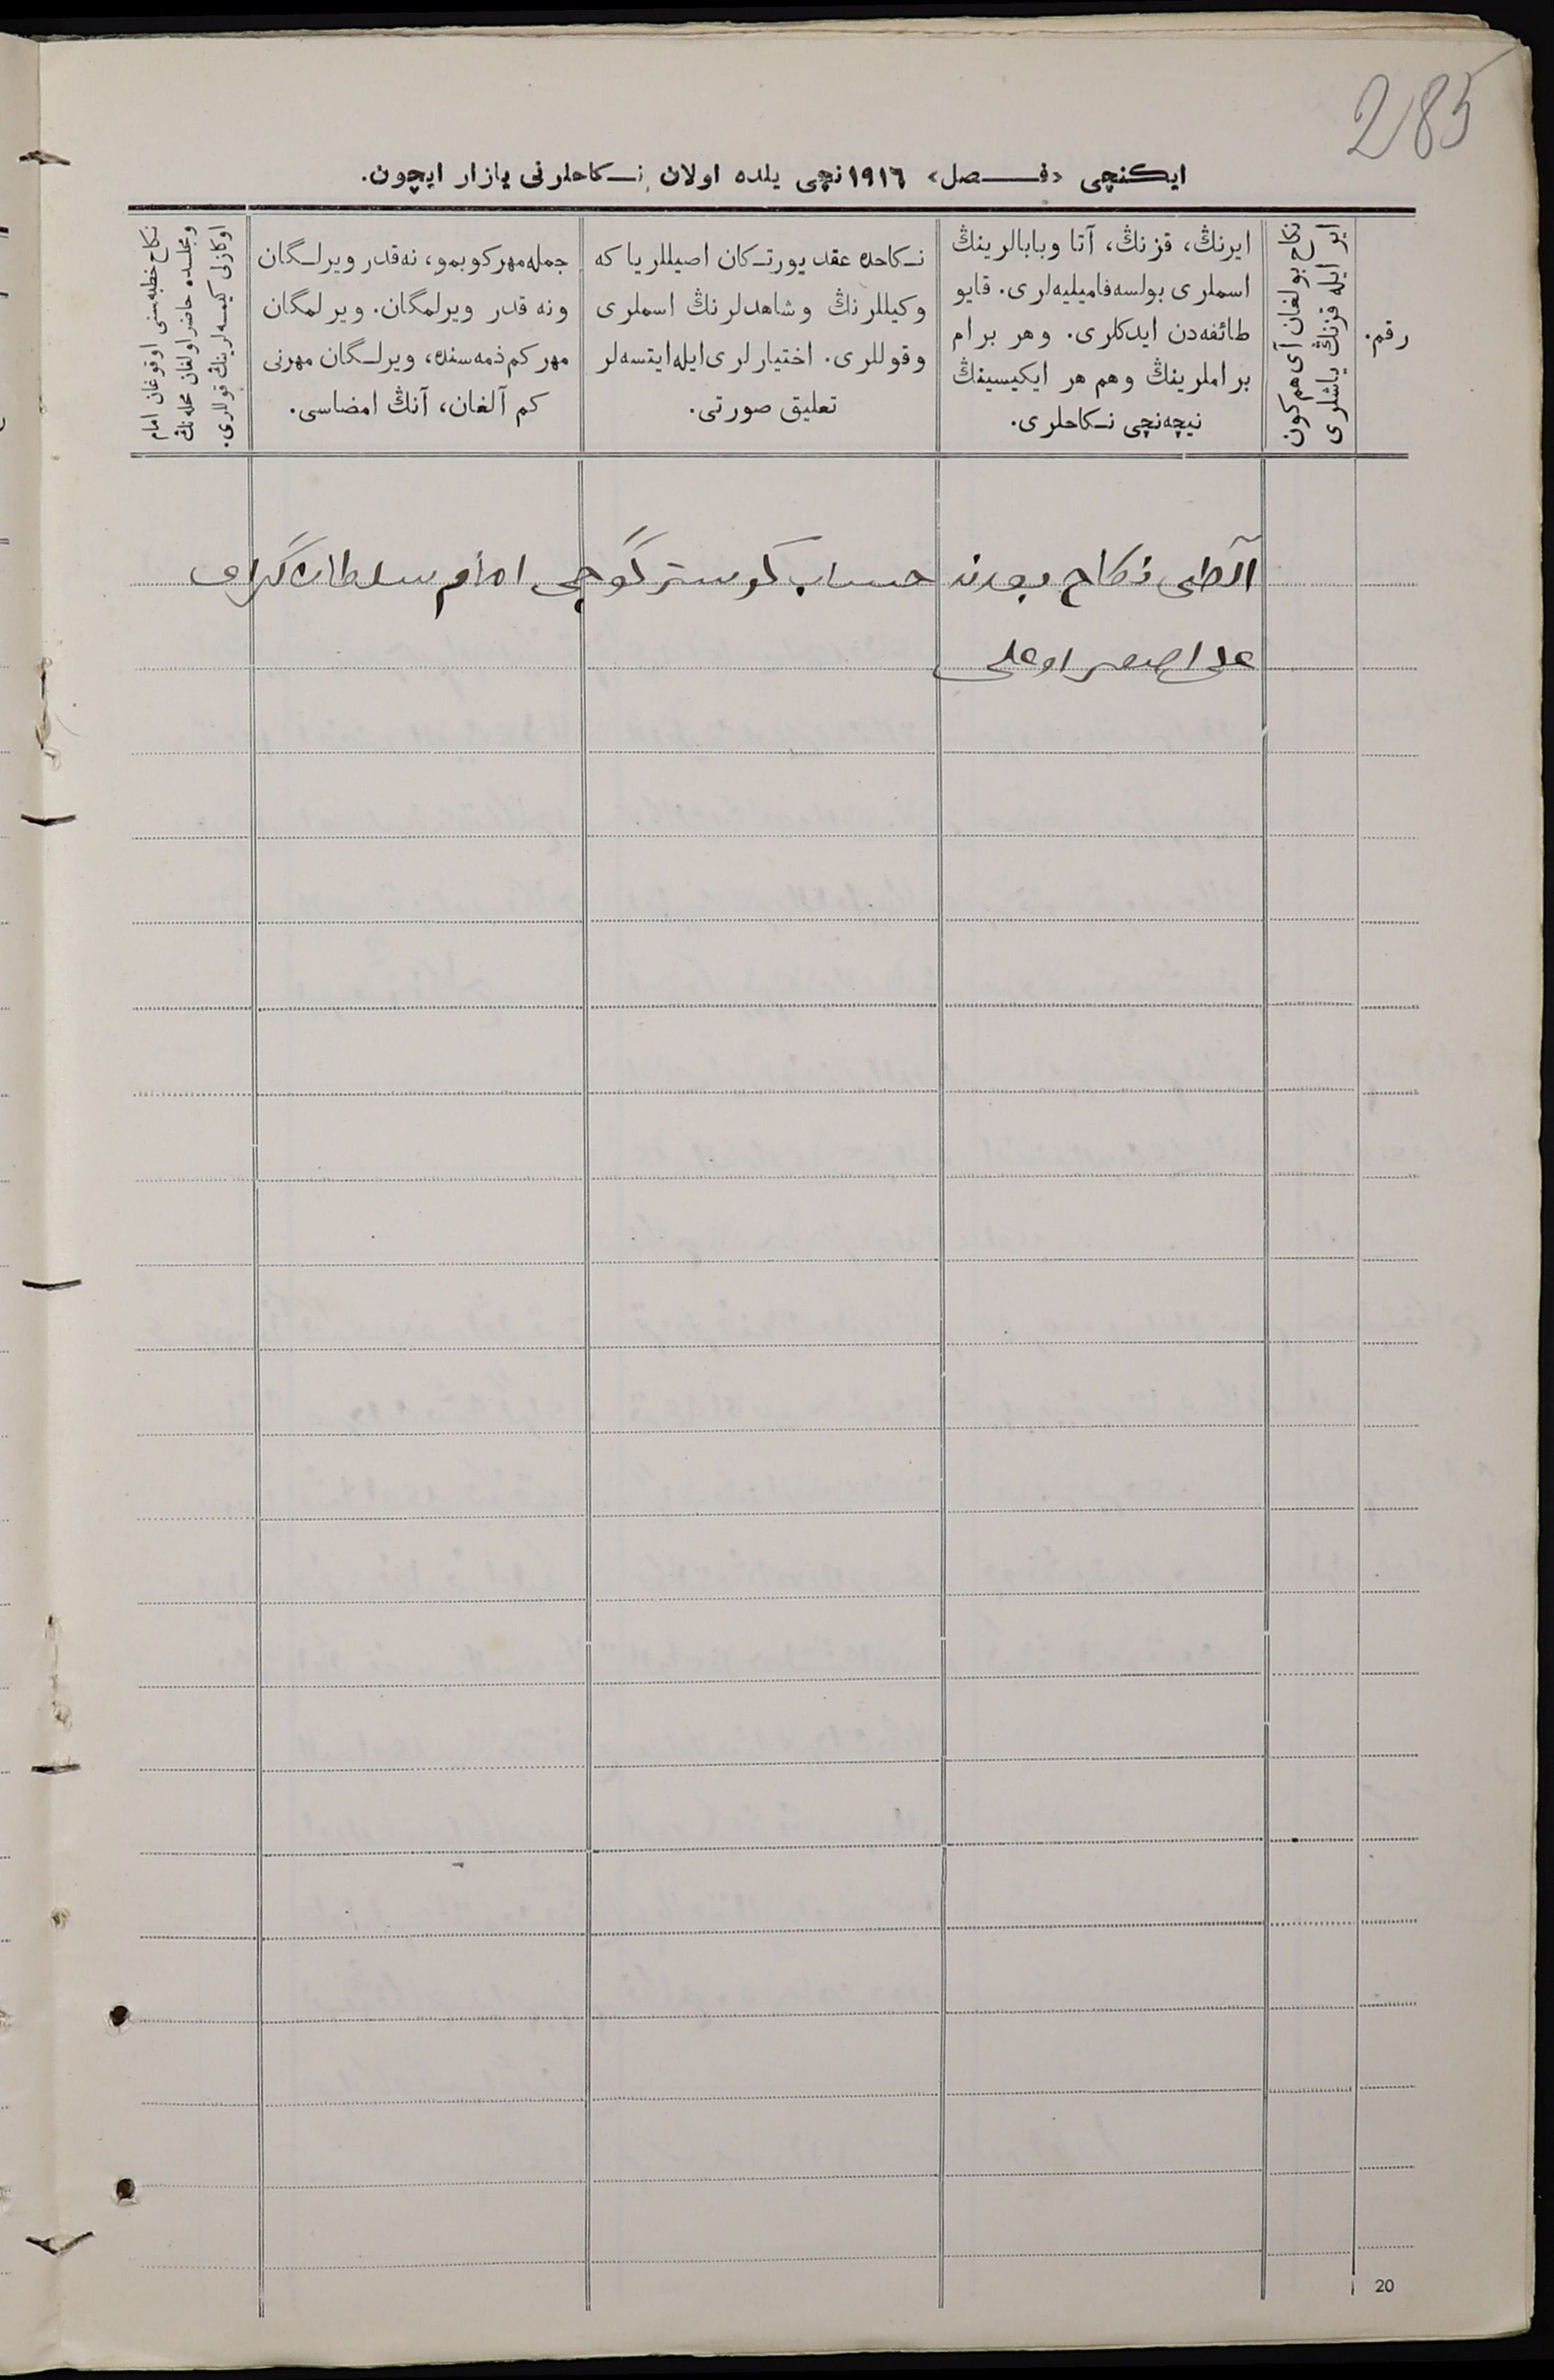 285
ایکنچی «فـــصل» ١٩١٦ نچی یلده اولان نـکاحلرنی یازار ایچون.
رقم.
نکاح بولغان آی هم کون
ایر ایله قزنڭ یاشلری
ایرنڭ، قزنڭ، آتا وبابالرینڭ
اسملری بولسه فامیلیه‌لری. قایو
طائفه‌دن ایدکلری. وهر برام
براملرینڭ وهم هر ایکیسینڭ
نیچه‌نچی نـکاحلری.
نـکاحده عقد یورتـکان اصیللر یا که
وکیللرنڭ وشاهدلرنڭ اسملری
وقوللری. اختیارلری ایله ایتسه‌لر
تعلیق صورتی.
جمله مهر کوبمو، نه‌قدر ویرلـگان
ونه قدر ویرلمگان. ویرلمگان
مهر کم ذمه‌سنده، ویرلـگان مهرنی
کم آلغان، آنڭ امضاسی.
نکاح خطبه‌سنی اوقوغان امام
ومجلسده حاضر اولغان محله‌نڭ
اوکازلی کیمسه‌لرینڭ قوللری.
آلطی نکاح حساب کوسترگوچی امام سلطان گرای
علی اصغر اوغلی
20